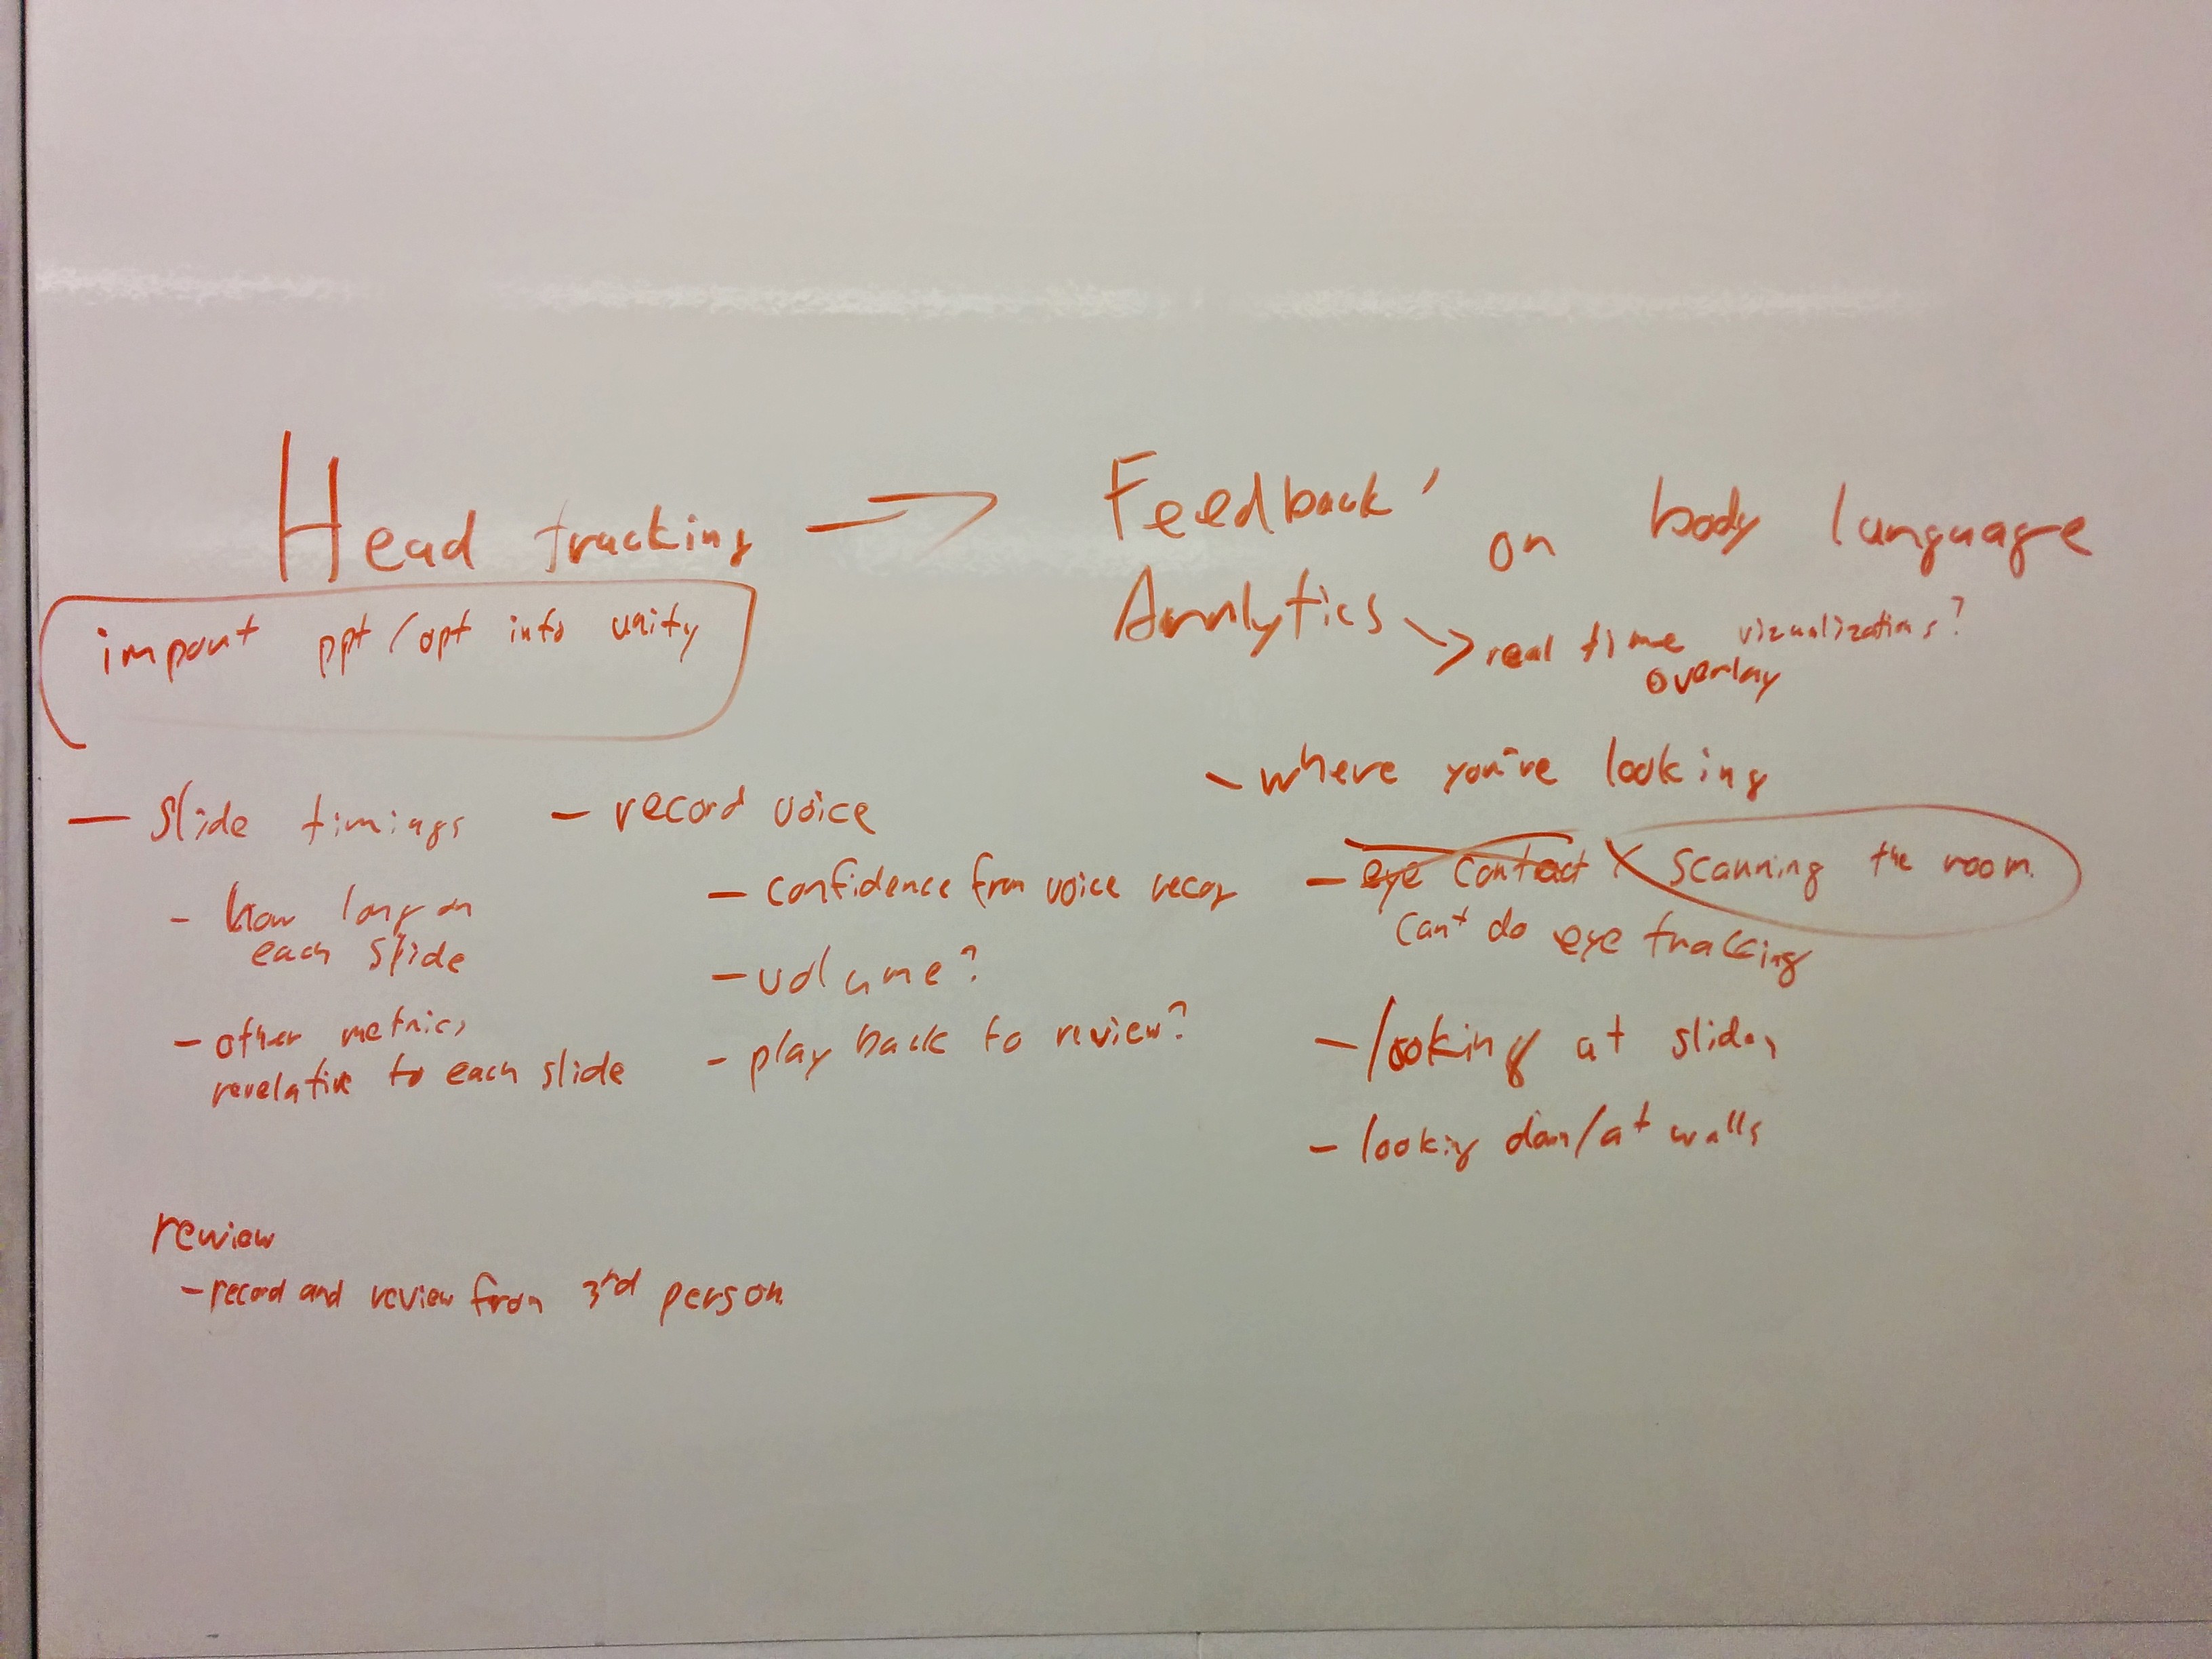 Head tracking → Feedback
on body language
Analytics
→ real time vizualizations?
overlay
import ppt/opt into unity
- where you're looking
- eye contact
scanning the room.
can't do eye tracking
- looking at slides
- looking down/at walls
- slide timings
- how long on
each slide
- other metrics
revelative to each slide
- record voice
- confidence from voice recog
- volume?
- play back to review?
review
- record and review from 3rd person